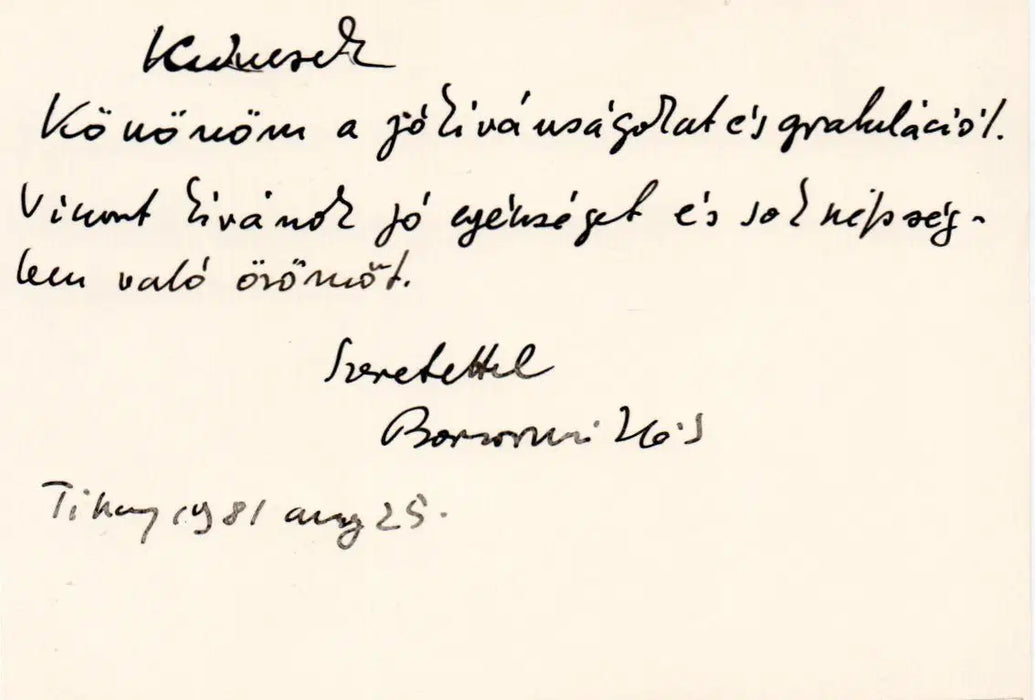 Kedvesek
Köszönöm a jókívánságokat és gratulációt.
Viszont kívánok jó egészséget és sok népség-
ben való örömöt.
Szeretettel
Borsos Miklós
Tihany 1981 aug 25.